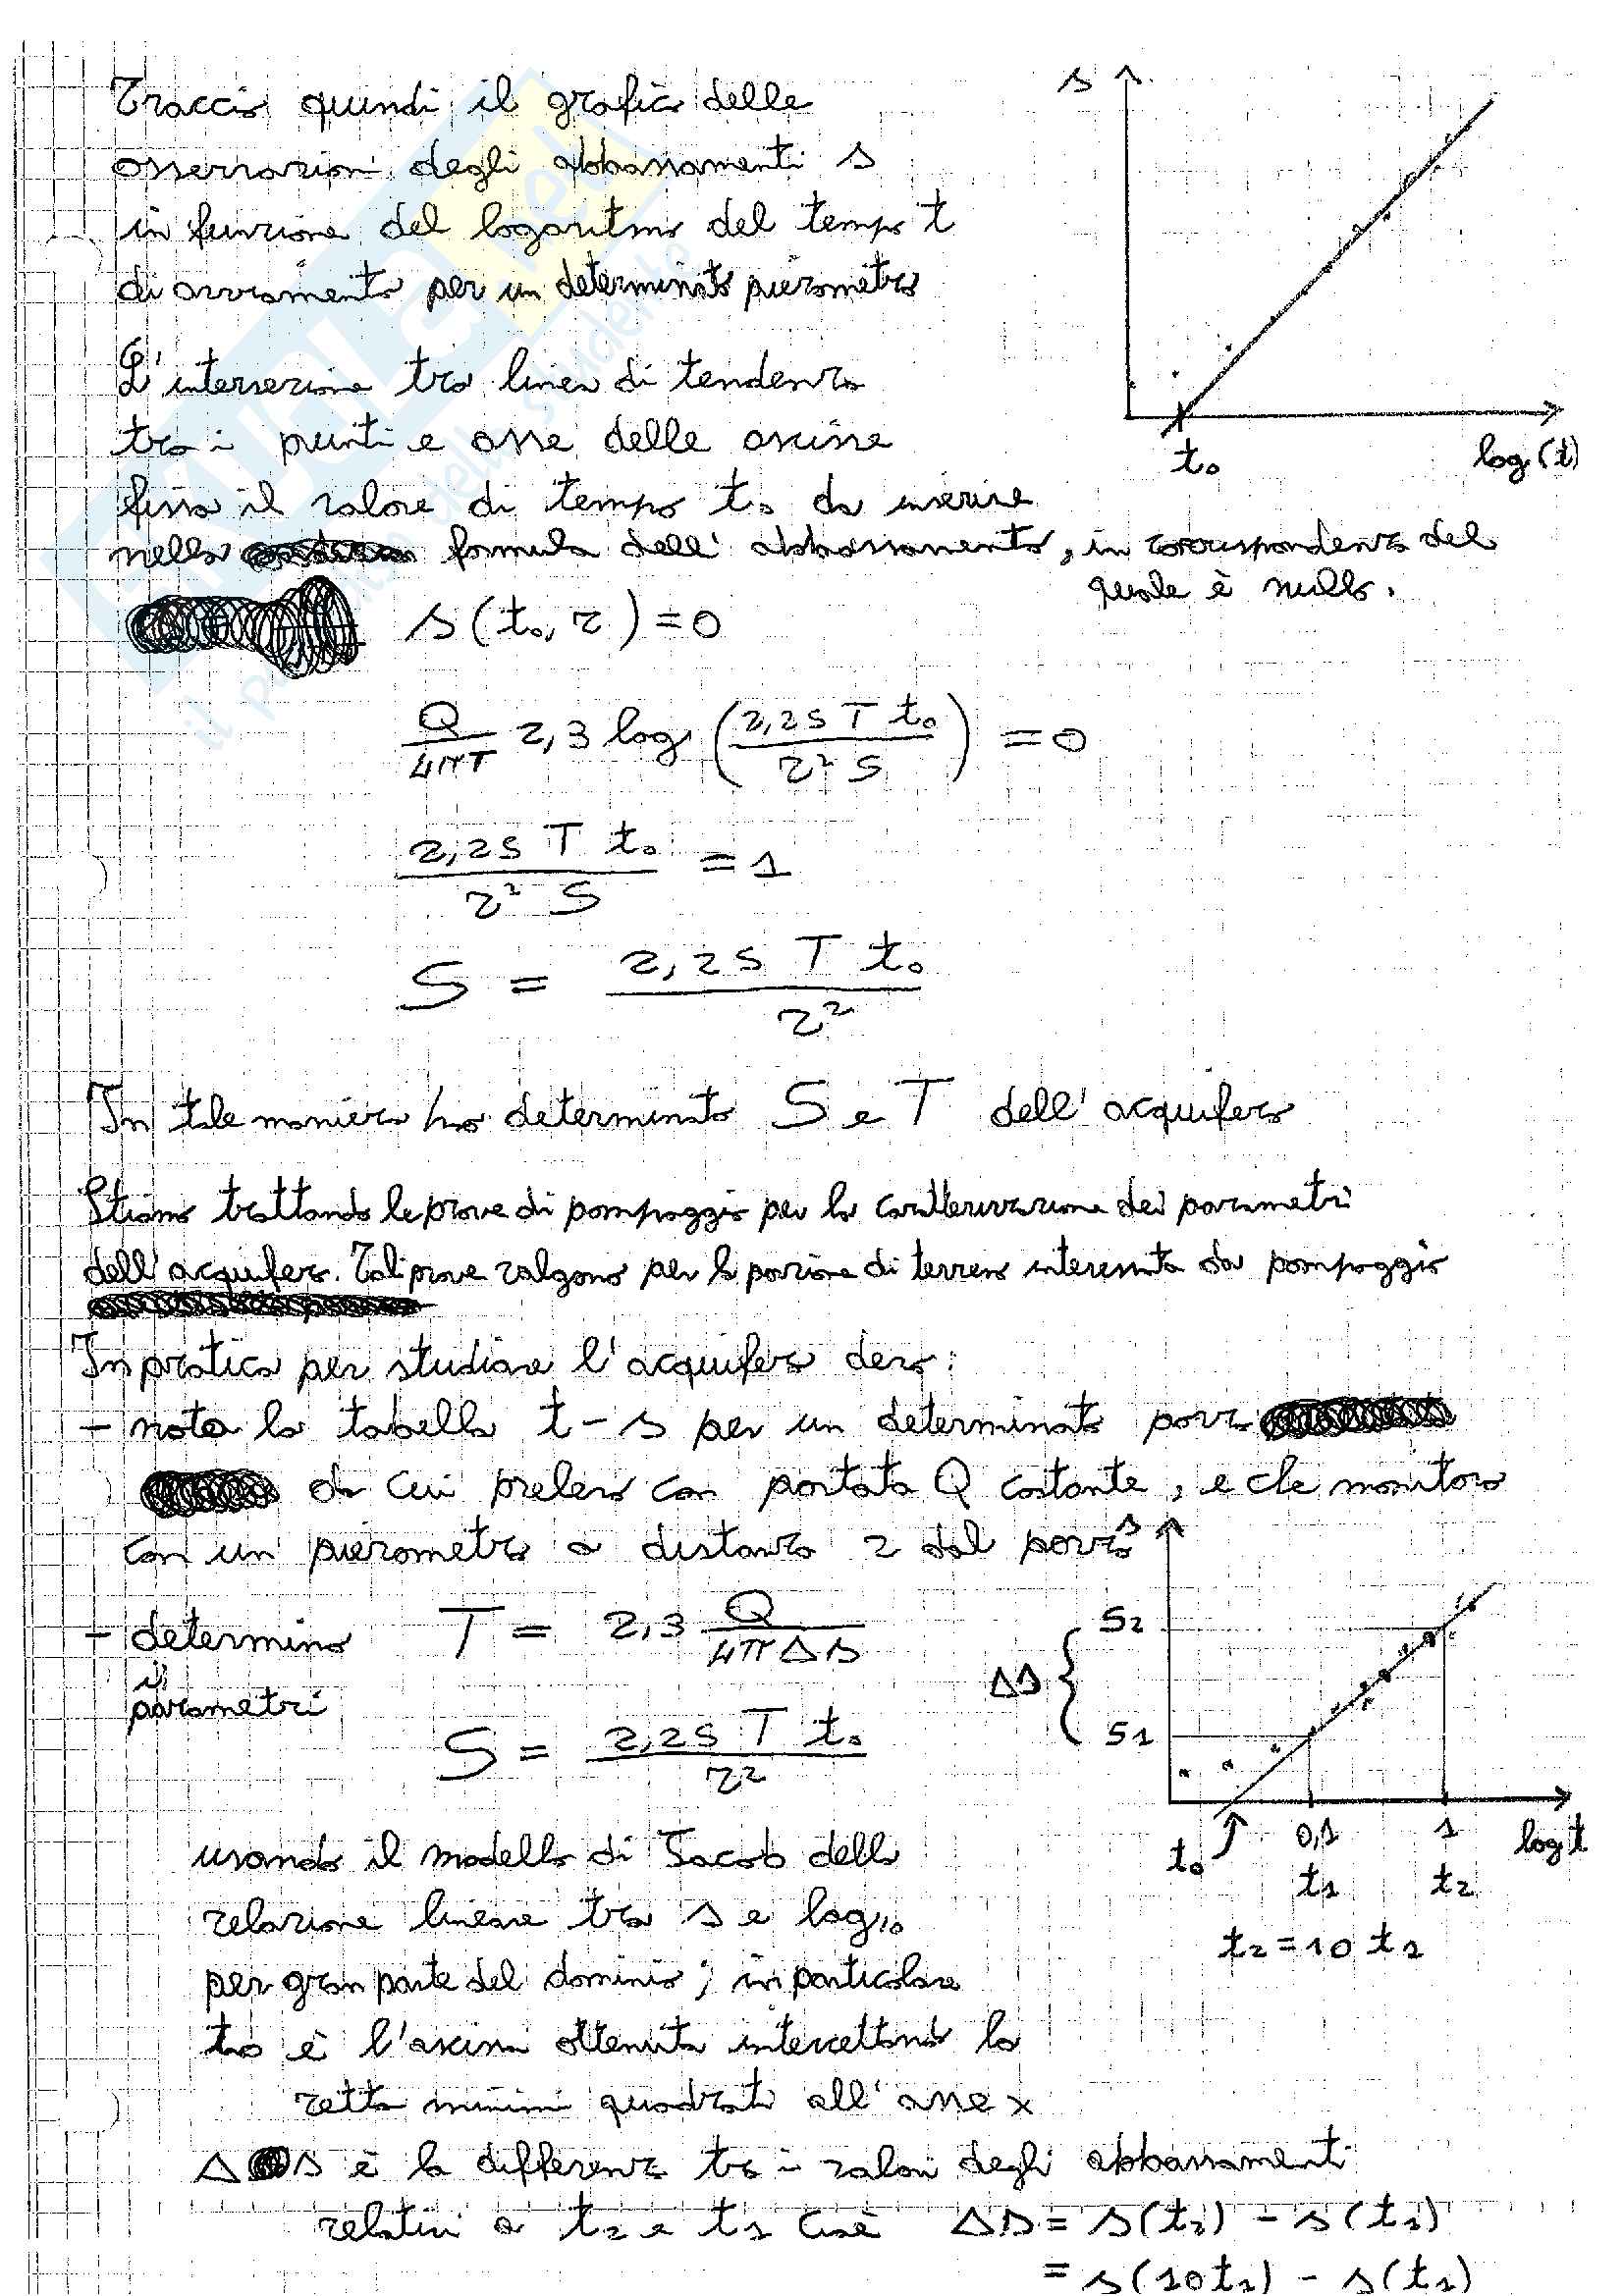 Traccio quindi il grafico delle
osservazioni degli abbassamenti s
in funzione del logaritmo del tempo t
di avviamento per un determinato piezometro
s
log(t)
t₀
L'intersezione tra linea di tendenza
tra i punti e asse delle ascisse
fissa il valore di tempo t₀ da inserire
nella formula dell'abbassamento, in corrispondenza del
quale è nullo.
s(t₀, r) = 0
Q/4πT 2,3 log (2,25 T t₀ / r² S) = 0
2,25 T t₀ / r² S = 1
S = 2,25 T t₀ / r²
In tale maniera ho determinato S e T dell'acquifero
Stiamo trattando le prove di pompaggio per la caratterizzazione dei parametri
dell'acquifero. Tali prove valgono per la porzione di terreno interessata da pompaggio
In pratica per studiare l'acquifero devo:
- nota la tabella t-s per un determinato pozzo
da cui prelevo con portata Q costante, e che monitoro
con un piezometro a distanza r dal pozzo
- determino i parametri
T = 2,3 Q / 4πΔs
S = 2,25 T t₀ / r²
s
S2
Δs {
S1
t₀ 0,1 1 log t
t1 t2
t2 = 10 t1
usando il modello di Jacob della
relazione lineare tra s e log₁₀
per gran parte del dominio; in particolare
t₀ è l'ascissa ottenuta intercettando la
retta minimi quadrati all'asse x
Δs è la differenza tra i valori degli abbassamenti
relativi a t2 e t1 cioè Δs = s(t2) - s(t1)
= s(10t1) - s(t1)